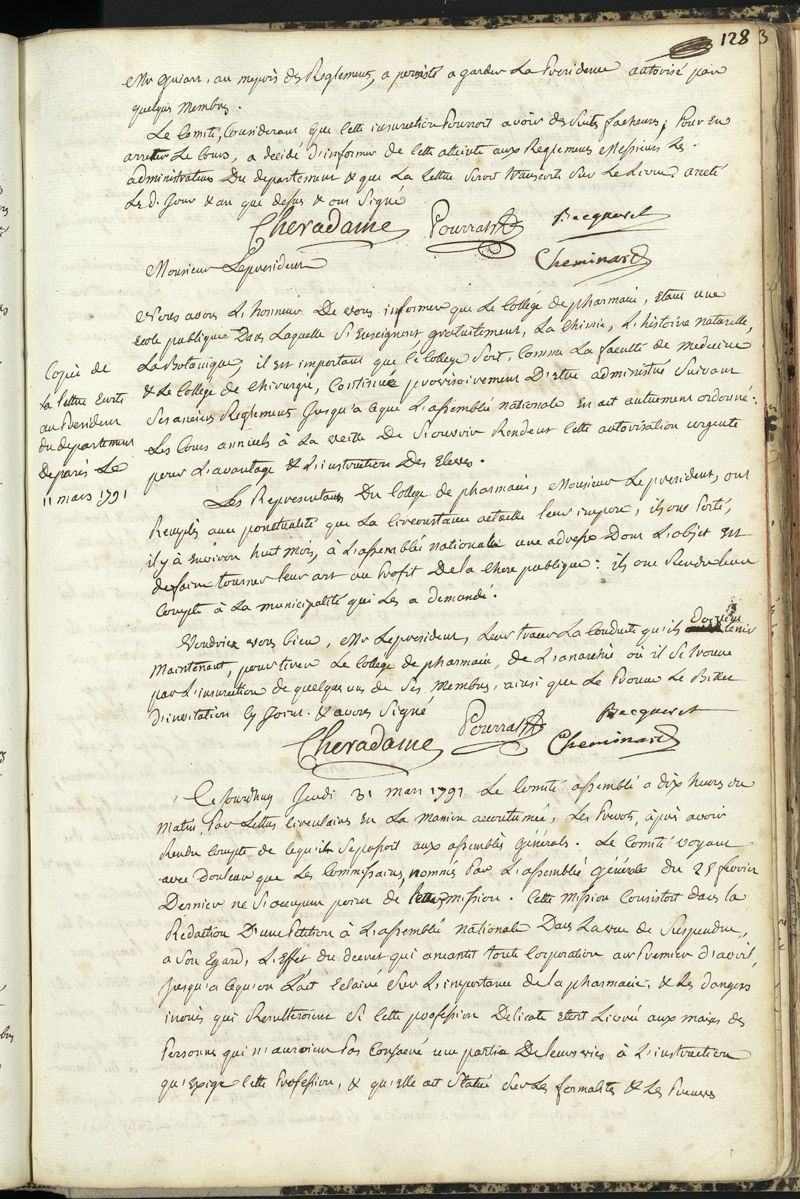 128 3
Mr Guiart, au mepris des Reglemens, a persisté a garder La Presidence autorisé par
quelques Membres.
Le Comité, Considerant que Cette insurection Pourroit avoir des Suites facheuses, Pour En
arretter Le Cours, a decidé d'informer de Cette atteinte aux Reglemens Messieurs Les
administrateurs Du departement & que La Lettre Seroit transcrite Sur Le Livre. areté
Le d. Jour & an que dessus & ont Signé
Cheradame Pourrat Becqueret
Cheminard
Monsieur Le president
Nous avons L'honneur De vous informer que Le Collége de pharmacie, Etant une
Ecole publique Dans Laquelle S'Enseignent gratuitement, La Chimie, L'histoire naturelle,
La Botanique, il Est important que le College Soit, Comme La faculté de Medecine
& Le College de Chirurgie, Continué provisoirement D'Etre administré Suivant
Ses anciens Reglemens Jusqu'a ceque L'assemblé nationale En ait autrement ordonné.
Les Cours annuels à La veille De S'ouvrir Rendent Cette autorisation urgente
pour L'avantage & L'instruction Des Eleves.
Copie de
la lettre Ecrite
au President
du departement
de paris Le
11 mars 1791
Les Representans Du College de pharmacie, Monsieur Le president, ont
Remplis avec ponctualité que La Circonstance actuelle leur impose, ils ont Porté,
il y à Environ huit Mois, à L'assemblé nationale une adresse Dont L'objet Est
de faire tourner leur art au Profit De la Chose publique: ils ont Rendu leur
Compte à La municipalité qui Les a demandé.
Voudriez vous bien, Mr Le president, Leur tracer La Conduite qu'ils Doivent tenir
Maintenant, pour tirer Le College de pharmacie, de L'anarchie où il Se trouve
par L'insurection de quelques uns de Ses Membres, ainsi que Le Prouve Le Billet
D'invitation Cy Joint. & avons Signé
Cheradame Pourrat Becqueret
Cheminard
Ce Jourdhuy Jeudi 31 Mars 1791 Le Comité assemblé a dix heures du
Matin, Par Lettres Circulaires En La Maniere accoutumée, Les Prevots, après avoir
Rendu Compte de Cequi Se passoit aux assemblés générales. Le Comité voyant
avec Douleur que Les Commissaires, nommés Par L'assemblée générale du 25 fevrier
Dernier ne S'occupent point de leur mission. Cette Mission Consistoit dans la
Redaction D'une Petition à L'assemblé Nationale Dans La vue de Suspendre,
à Son Egard, L'Effet du decret qui aneantit toute Corporation au Premier d'avril,
Jusqu'a cequ'on L'ait Eclairé Sur L'importance de la pharmacie, & Les dangers
inouis qui Resulteroient Si Cette profession Délicate Etoit Livrée aux mains des
Personnes qui n'auroient Pas Consacré une partie De leurs vies à L'instruction
qu'Exige Cette Profession, & qu'elle ait Statué Sur Les formalités & Les Preuves